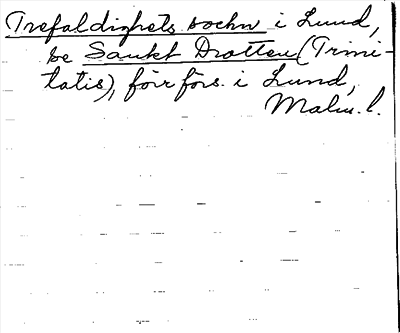 Trefaldighets sochn i Lund,
se Sankt Drotten (Trini-
tatis), förr förs. i Lund,
Malm. l.